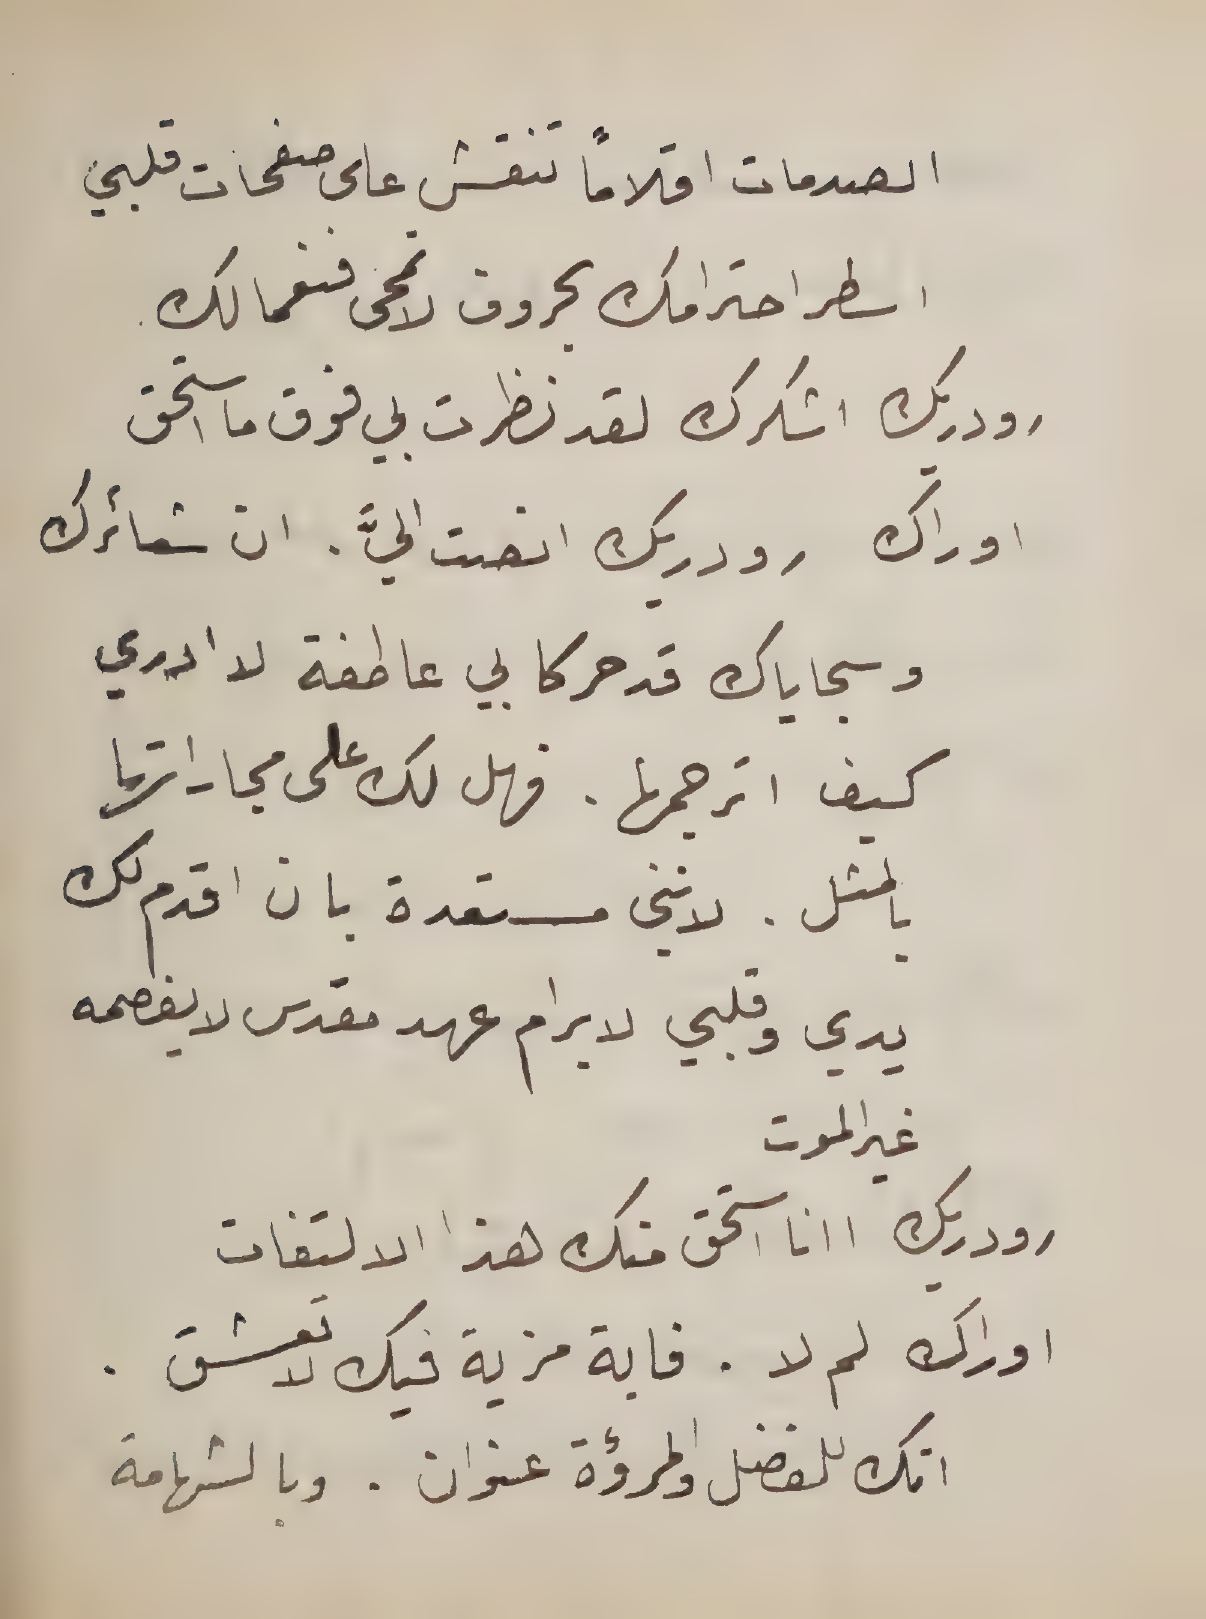 الصدمات اقلاماً تنقش على صفحات قلبي
اسطر احترامك بحروف لا تمحى فنعما لك.
رودريك اشكرك لقد نظرت بي فوق ما استحق
اوراك رودريك انصت اليَّ. ان شعائرك
وسجاياك قد حركا بي عاطفة لا ادري
كيف اترجمها. فهل لك على مجاراتها
بالمثل. لانني مستعدة بان اقدم لك
يدي وقلبي لابرام عهد مقدس لا يفصمه
غير الموت
رودريك اانا استحق منك هذا الالتفات
اوراك لم لا. فاية مزية فيك لا تعشق.
انك للفضل والمروؤة عنوان. وبالشهامة